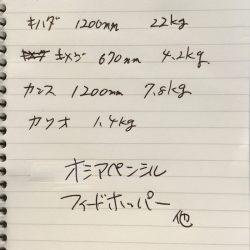 キハダ 1200mm 22kg
キメジ 670mm 4.2kg
カンス 1200mm 7.8kg
カツオ 1.4kg
オシアペンシル
フィードホッパー
他